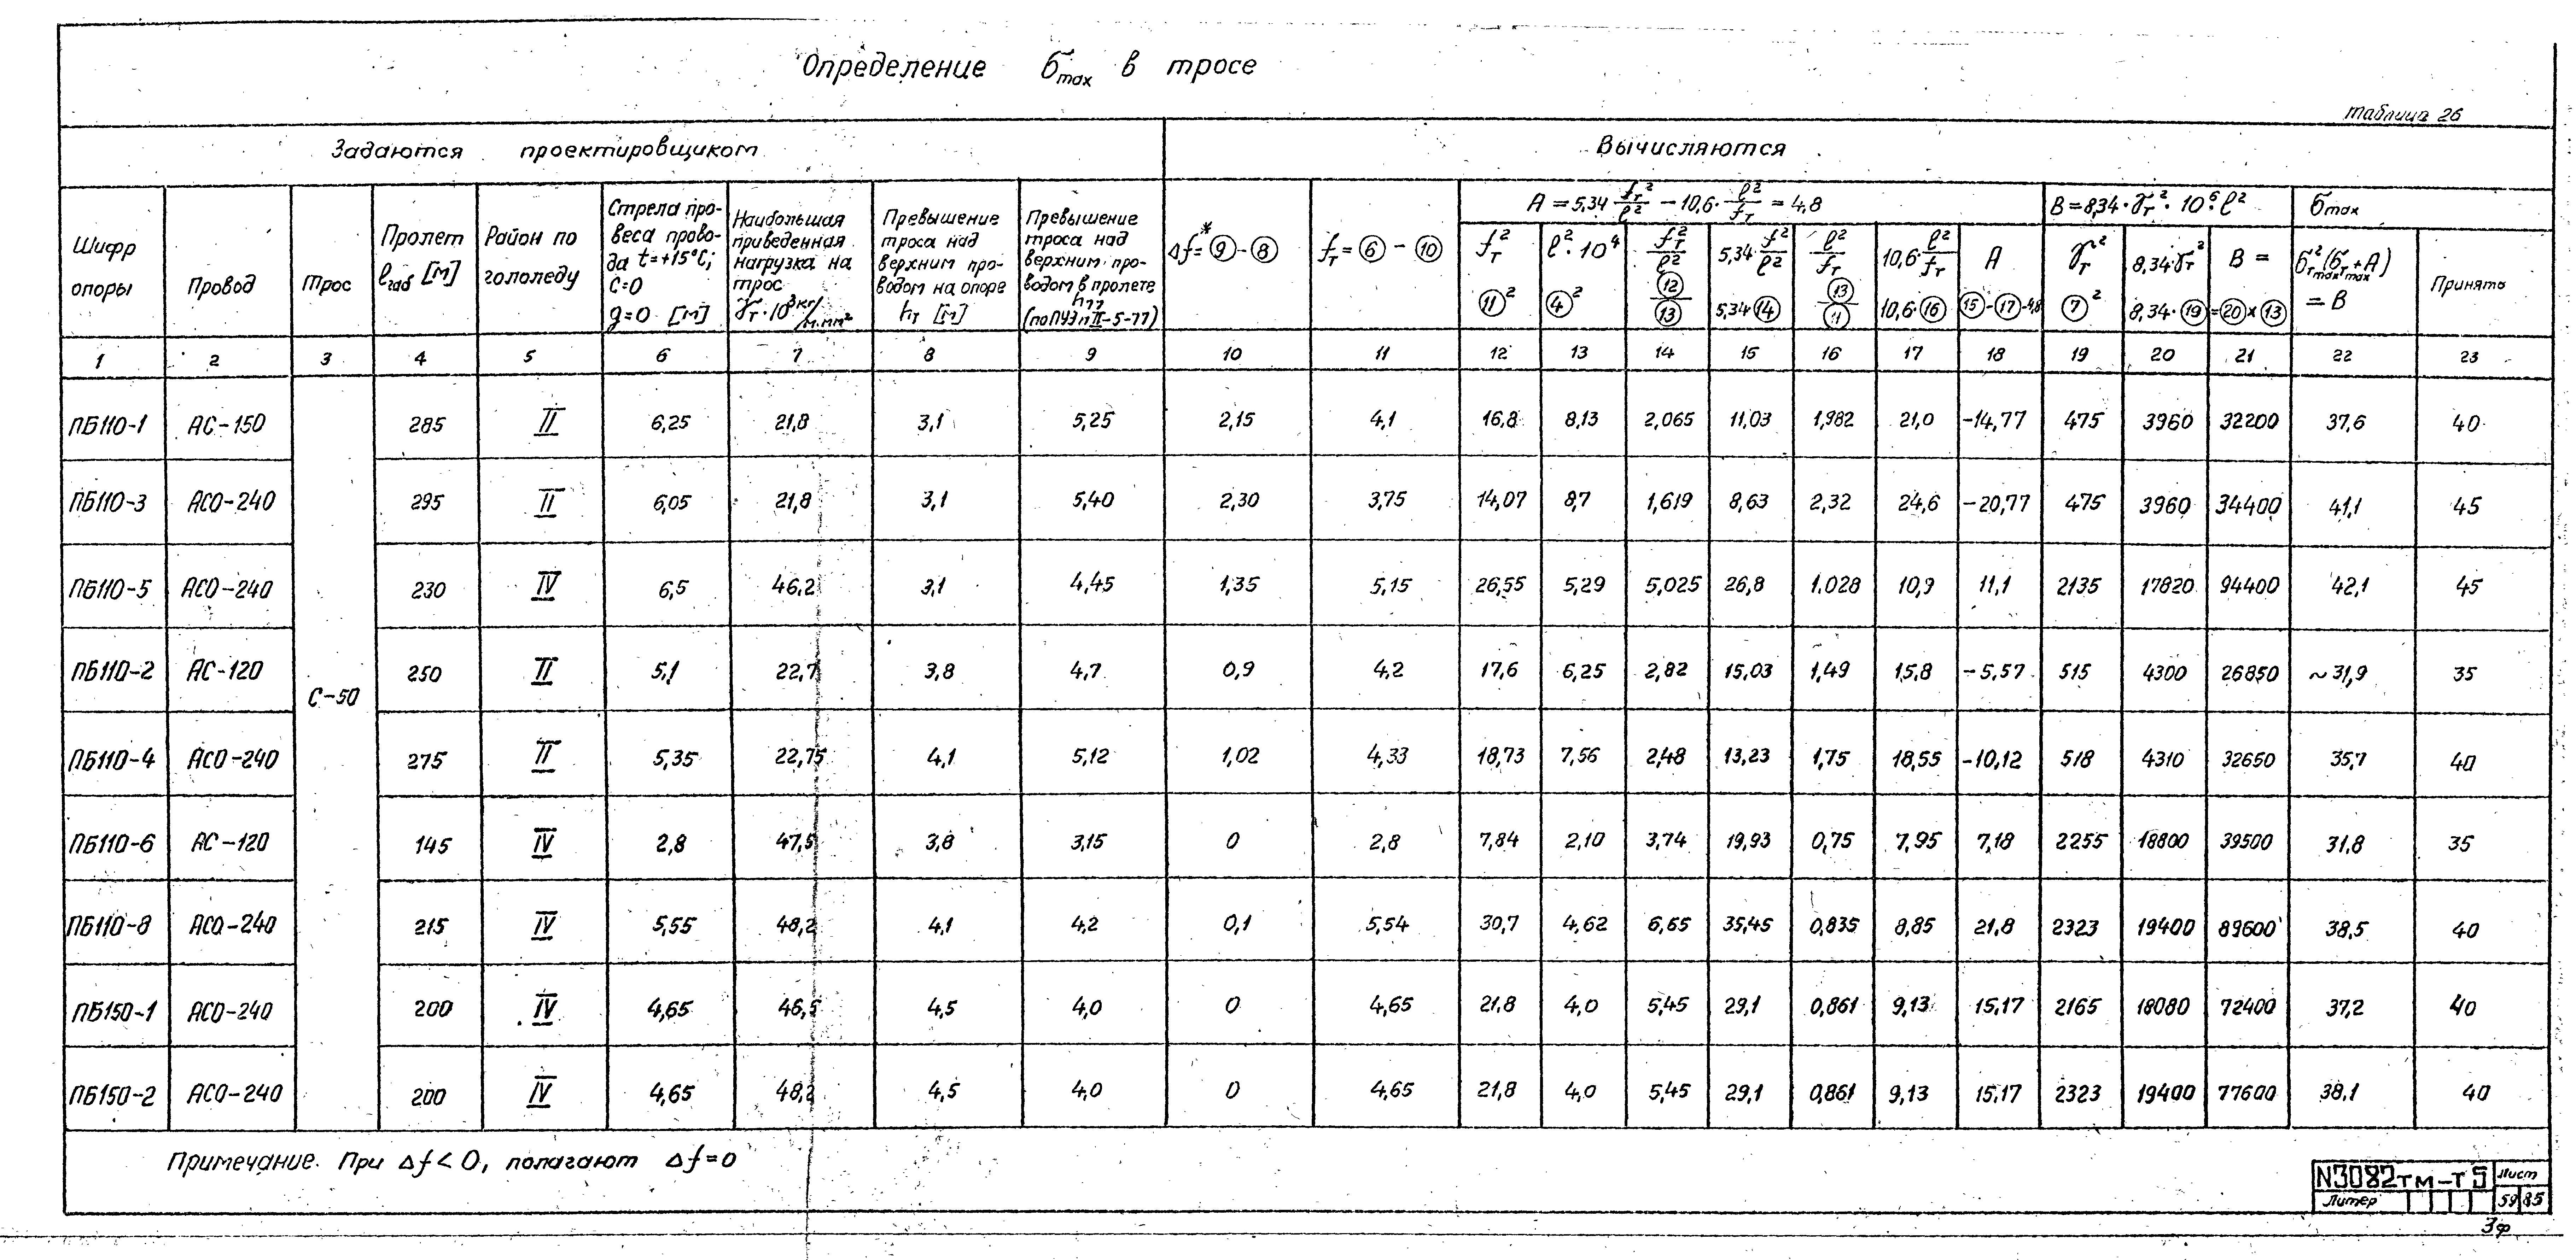 Определение σmax в тросе
Таблица 26
Задаются проектировщиком
Вычисляются
Шифр опоры
Провод
Трос
Пролет lгаб [м]
Район по гололеду
Стрела провеса провода t=+15°C; C=0 g=0 [м]
Наибольшая приведенная нагрузка на трос γт·10³ кг/м.мм²
Превышение троса над верхним проводом на опоре hт [м]
Превышение троса над верхним проводом в пролете (по ПУЭ п II-5-77)
Δf*=⑨-⑧
fт=⑥-⑩
A=5,34·fт²/l² - 10,6·l²/fт = 4,8
B=8,34·γт²·10⁶·l²
σmax
fт² ⑪²
l²·10⁴ ④²
fт²/l² ⑫/⑬
5,34·f²/l² 5,34⑭
l²/fт ⑬/⑪
10,6·l²/fт 10,6·⑯
A ⑮-⑰-4,8
γт² ⑦²
8,34·γт² 8,34·⑲
B= =⑳×⑬
σ²тmax(σтmax+A) = B
Принято
1 2 3 4 5 6 7 8 9 10 11 12 13 14 15 16 17 18 19 20 21 22 23
ПБ110-1 АС-150 285 II 6,25 21,8 3,1 5,25 2,15 4,1 16,8 8,13 2,065 11,03 1,982 21,0 -14,77 475 3960 32200 37,6 40
ПБ110-3 АСО-240 295 II 6,05 21,8 3,1 5,40 2,30 3,75 14,07 8,7 1,619 8,63 2,32 24,6 -20,77 475 3960 34400 41,1 45
ПБ110-5 АСО-240 230 IV 6,5 46,2 3,1 4,45 1,35 5,15 26,55 5,29 5,025 26,8 1.028 10,9 11,1 2135 17820 94400 42,1 45
ПБ110-2 АС-120 250 II 5,1 22,7 3,8 4,7 0,9 4,2 17,6 6,25 2,82 15,03 1,49 15,8 -5,57 515 4300 26850 ~31,9 35
С-50
ПБ110-4 АСО-240 275 II 5,35 22,75 4,1 5,12 1,02 4,33 18,73 7,56 2,48 13,23 1,75 18,55 -10,12 518 4310 32650 35,7 40
ПБ110-6 АС-120 145 IV 2,8 47,5 3,8 3,15 0 2,8 7,84 2,10 3,74 19,93 0,75 7,95 7,18 2255 18800 39500 31,8 35
ПБ110-8 АСО-240 215 IV 5,55 48,2 4,1 4,2 0,1 5,54 30,7 4,62 6,65 35,45 0,835 8,85 21,8 2323 19400 89600 38,5 40
ПБ150-1 АСО-240 200 IV 4,65 46,5 4,5 4,0 0 4,65 21,8 4,0 5,45 29,1 0,861 9,13 15,17 2165 18080 72400 37,2 40
ПБ150-2 АСО-240 200 IV 4,65 48,2 4,5 4,0 0 4,65 21,8 4,0 5,45 29,1 0,861 9,13 15,17 2323 19400 77600 38,1 40
Примечание. При Δf<0, полагают Δf=0
N3082тм-т5 Лист
Литер 59 85
3ф